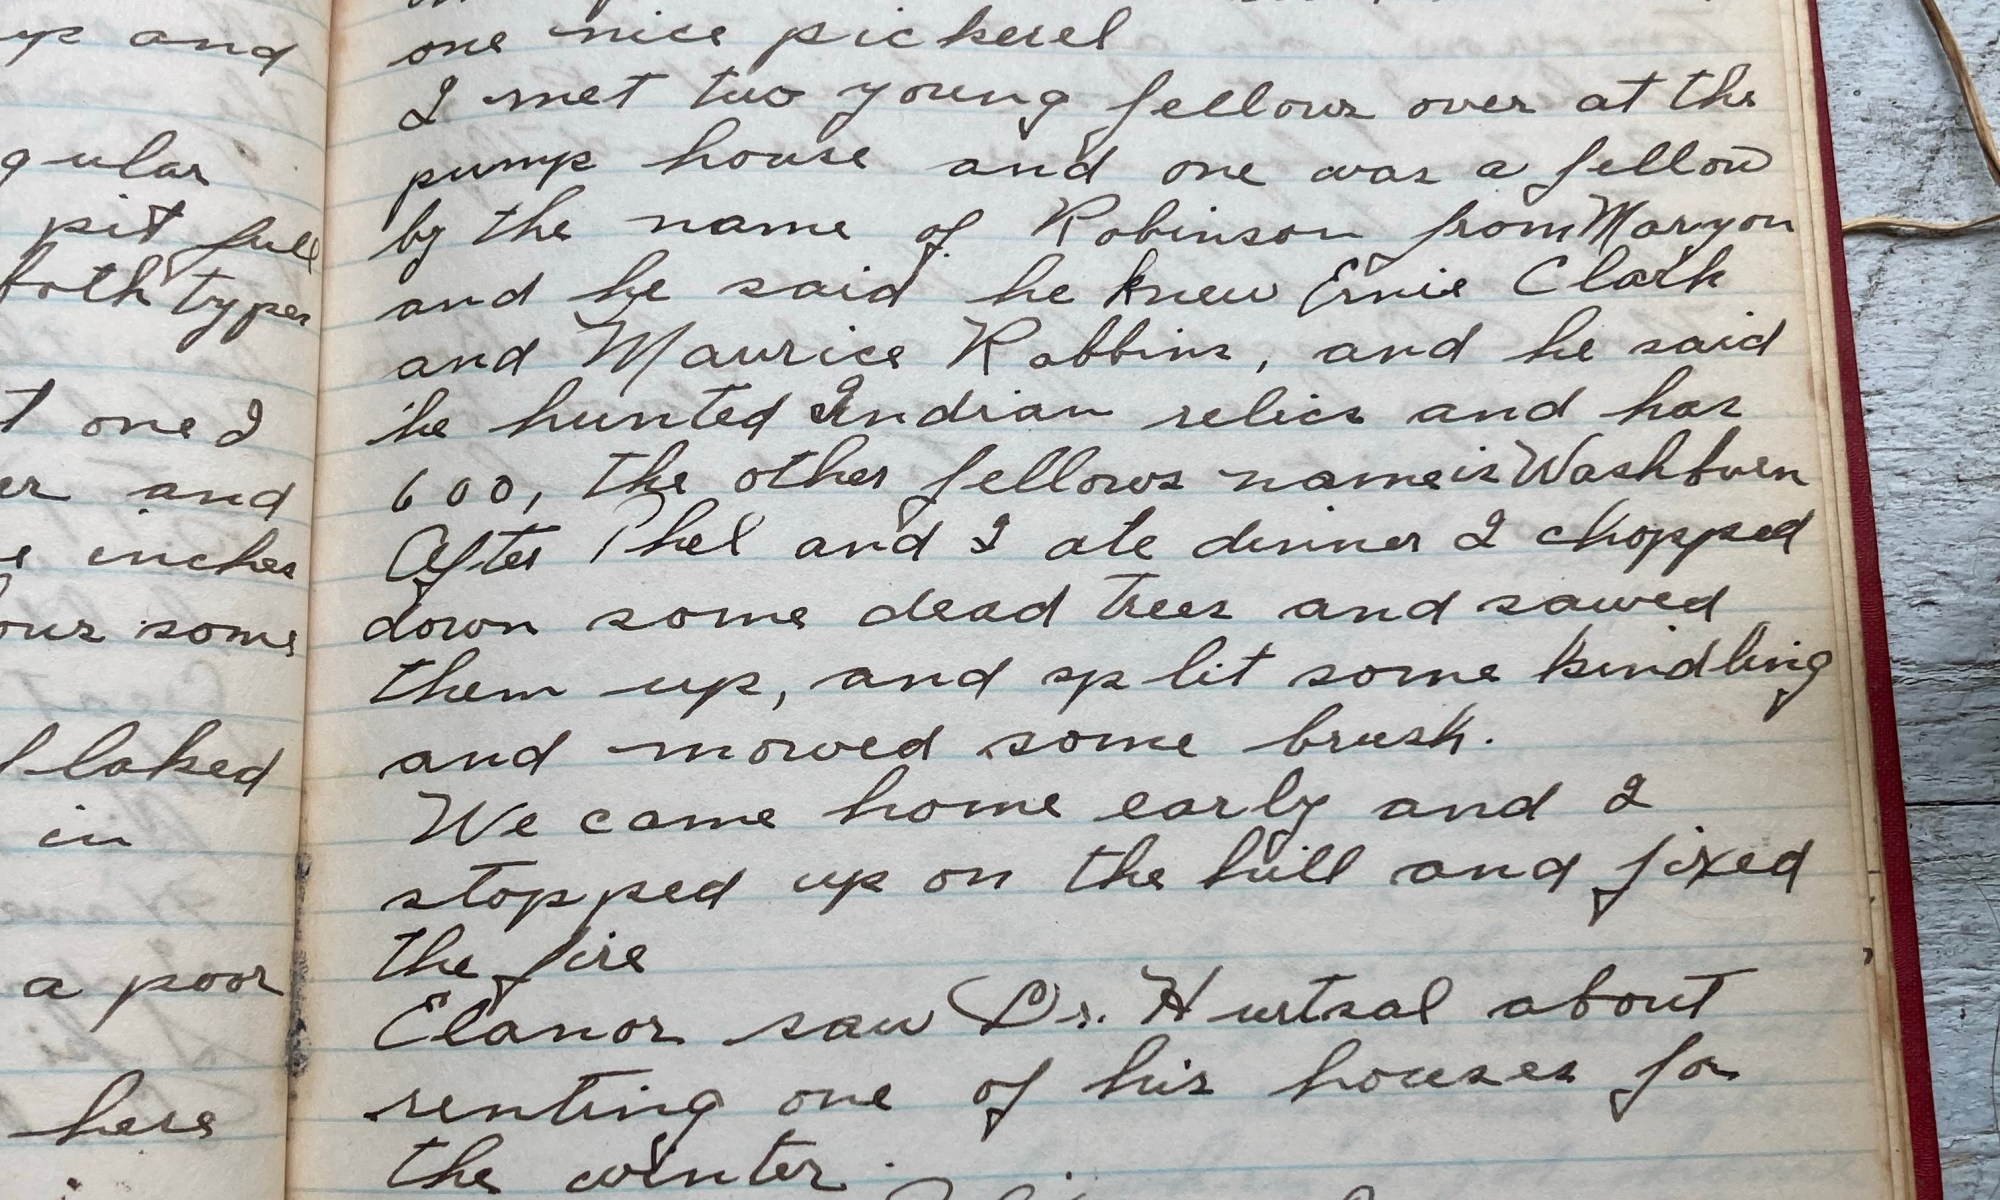 up and
gular
pit full
both types
t one I
er and
inches
ours some
flaked
in
a poor
here
one nice pickerel
I met two young fellows over at the
pump house and one was a fellow
by the name of Robinson from Maryon
and he said he knew Ernie Clark
and Maurice Robbins, and he said
he hunted Indian relics and has
600, the other fellows name is Washburn
After Phel and I ate dinner I chopped
down some dead trees and sawed
them up, and split some kindling
and mowed some brush.
We came home early and I
stopped up on the hill and fixed
the fire
Elanor saw Dr. Hurtsal about
renting one of his houses for
the winter